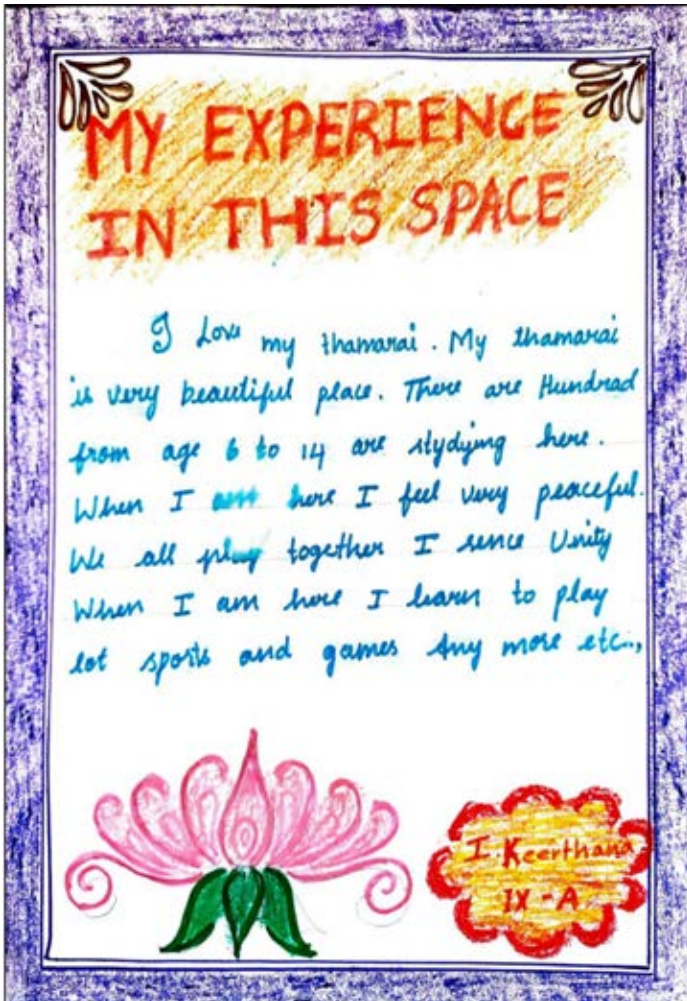 MY EXPERIENCE
IN THIS SPACE
I Love my thamarai. My thamarai
is very beautiful place. There are Hundrad
from age 6 to 14 are stydying here.
When I am here I feel very peaceful.
We all play together I sence Unity
When I am here I learn to play
lot sports and games Any more etc..,
I. Keerthana
IX-A